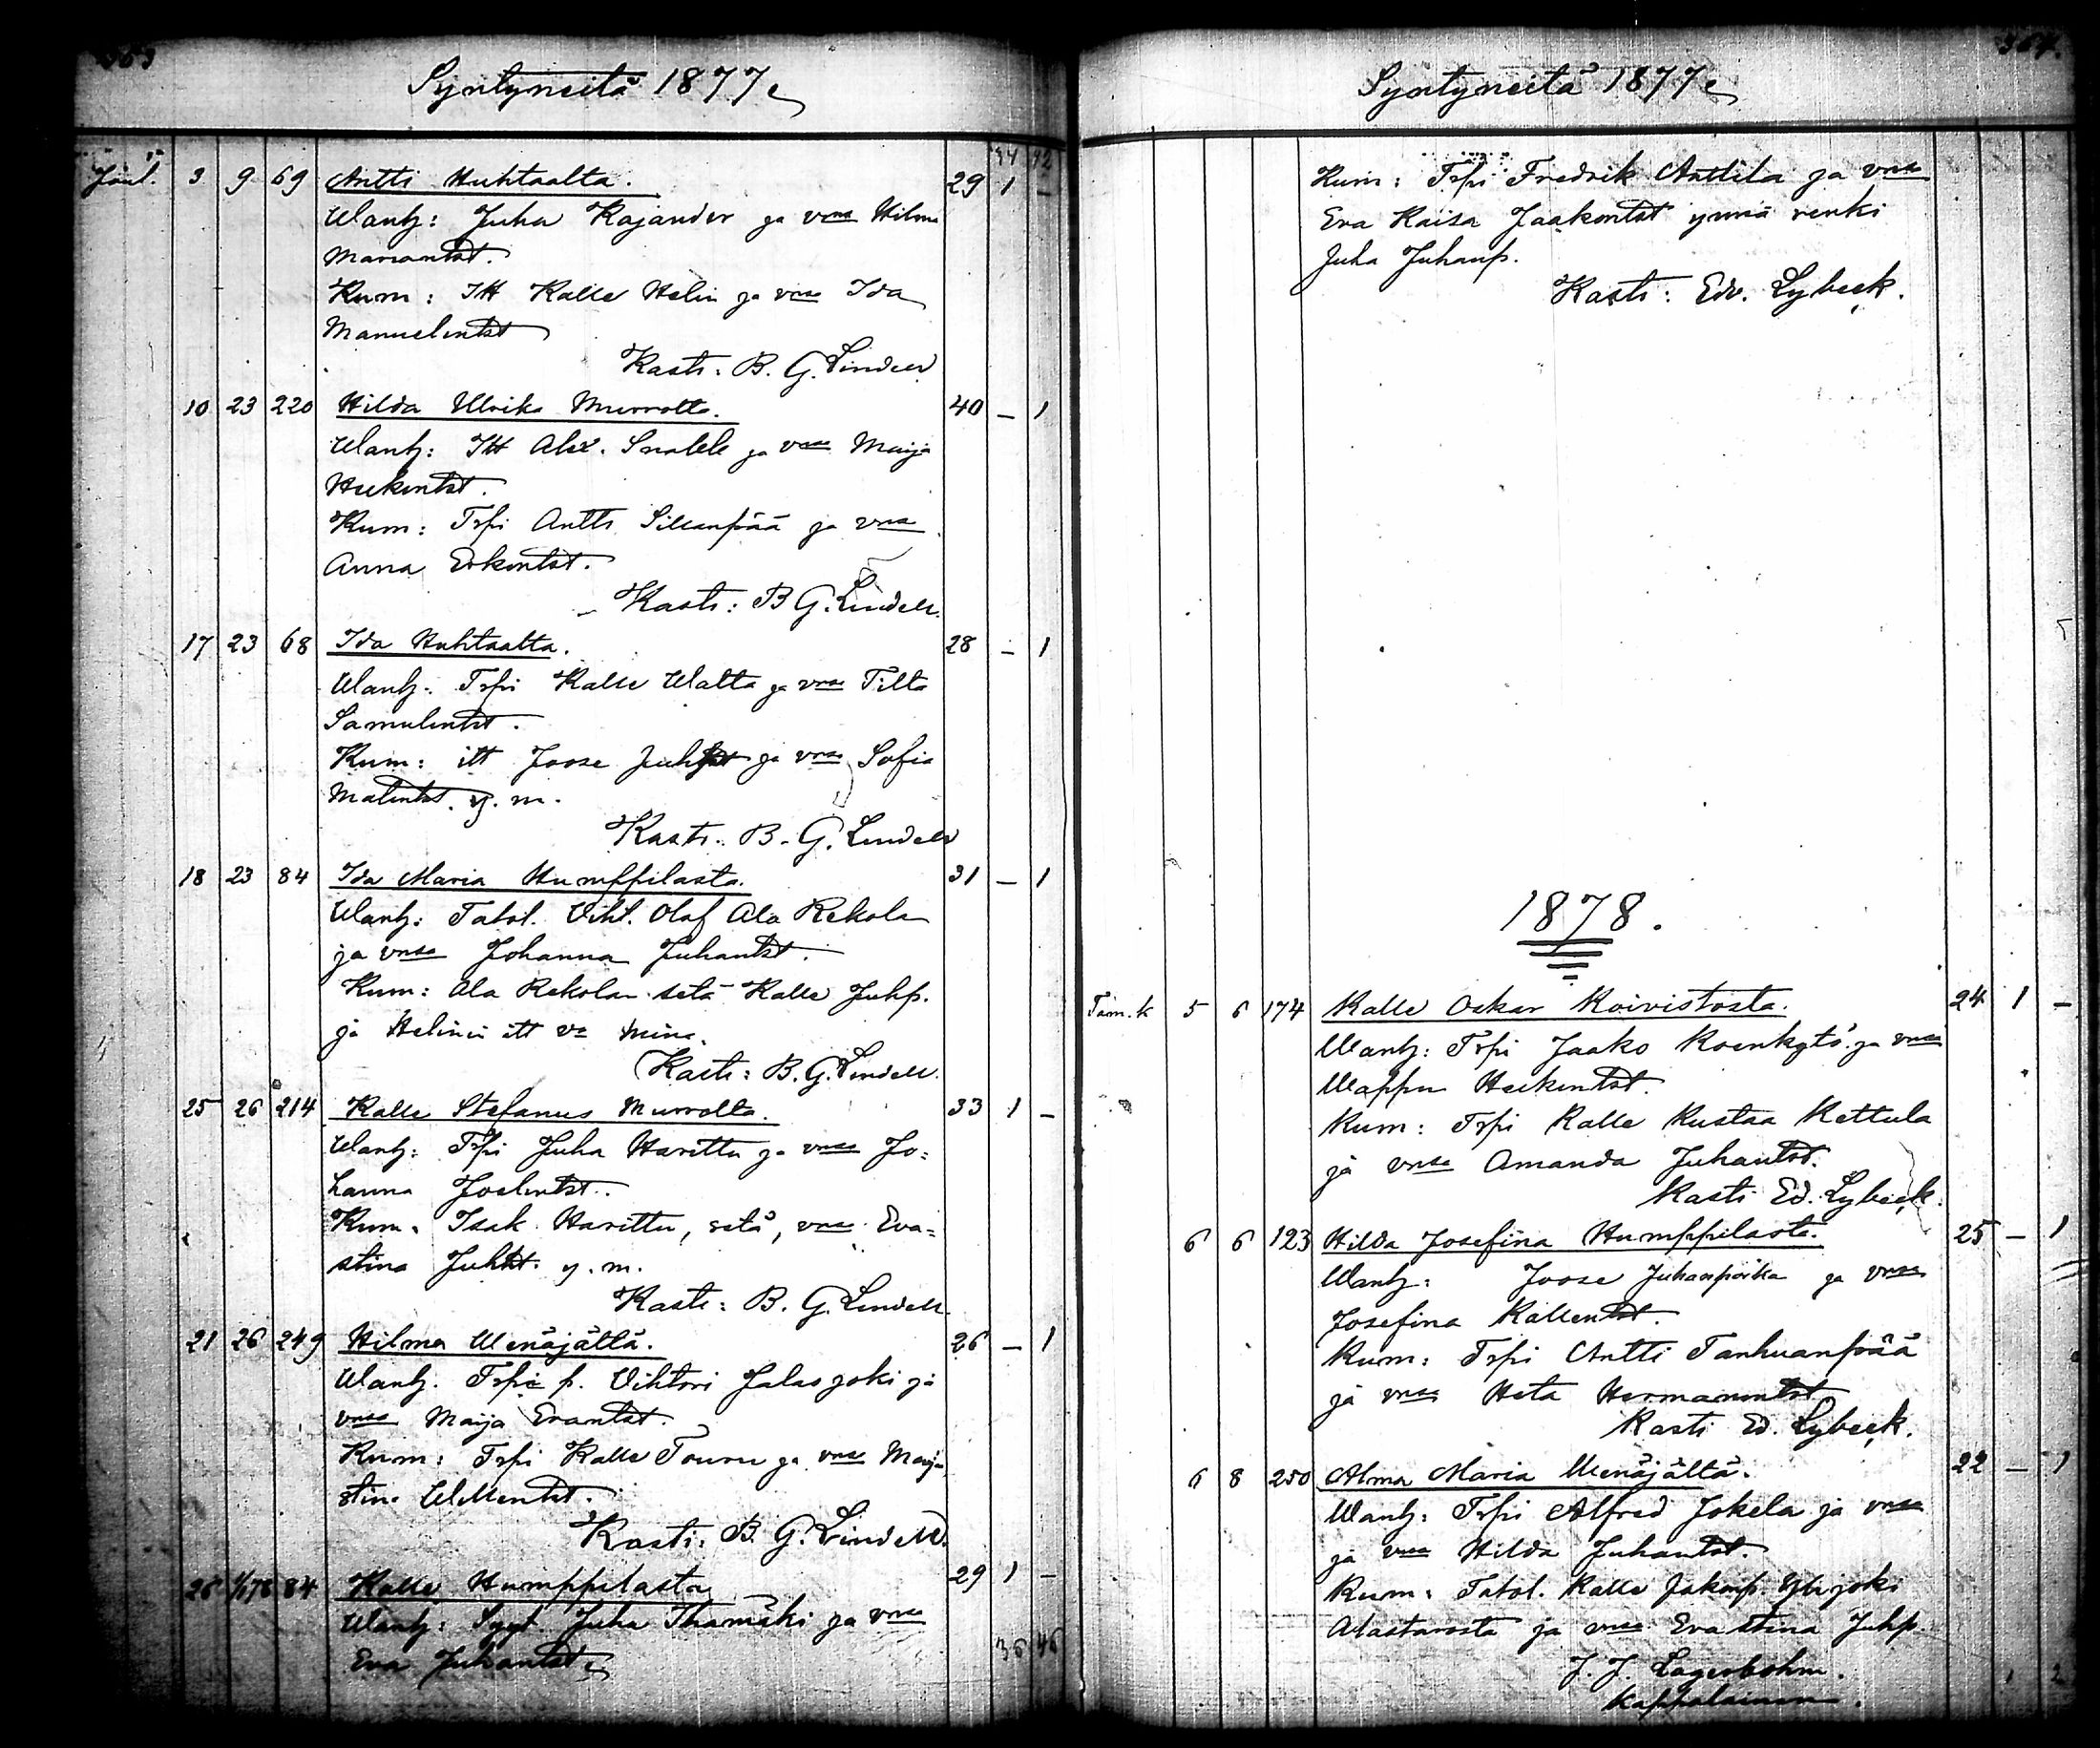 363
Syntyneitä 1877
Joul. 3 9 69 Antti Huhtaalta. 29 1 –
Wanh: Juha Kajander ja vmsa Hilma
Kum: Itt Kalle Helin ja vmsa Ida
Manuelintst
Kast: B. G. Lindell
10 23 220 Hilda Ulrika Murrolta. 40 – 1
Wanh: Itt Alex. ja vmsa Maija
Heikintst.
Kum: Trpi Antti Sillanpää ja vmsa
Anna Erkintst.
Kast: B G. Lindell.
17 23 68 Ida Huhtaalta. 28 – 1
Wanh: Trpi Kalle Walta ja vmsa Tilta
Samulintst.
Kum: itt Joose ja vmsa Sofia
Matintst. y. m.
Kast: B. G. Lindell
18 23 84 Ida Maria Humppilasta. 31 – 1
Wanh: Tatol. Viht. Olof Ala Rekola
ja vmsa Johanna Juhantst.
Kum: Ala Rekolan setä Kalle Juhp.
ja Helinin itt va Mina.
Kasti: B. G. Lindell.
25 26 214 Kalle Stefanus Murrolta. 33 1 –
Wanh: Trpi Juha Harittu ja vmsa Jo=
hanna Joslintst.
Kum: Isak Harittu, setä, vmsa Eva=
stina Juhtt. y. m.
Kasti: B. G. Lindell.
21 26 249 Hilma Wenäjältä. 26 – 1
Wanh. Trpi p. Vihtori Jalasjoki ja
vmsa Maija Evantst.
Kum: Trpi Kalle Touru ja vmsa Maija
stina Willentst.
Kasti: B. G. Lindell.
26 1/1 78 84 Kalle Humppilasta 29 1 –
Wanh: Juha Ihamäki ja vmsa
Eva Juhantst.
36 46
364.
Syntyneitä 1877
Kum: Trpi Fredrik Anttila ja vmsa
Eva Kaisa Jaakontst ynnä renki
Juha Juhanp.
Kasti: Edv. Lybeck.
1878.
Tam.k 5 6 174 Kalle Oskar Koivistosta. 24 1 –
Wanh: Trpi Jaako Koenkytö ja vmsa
Wappu Heikintst.
Kum: Trpi Kalle Kustaa Kettula
ja vmsa Amanda Juhantst.
Kasti Ed. Lybeck.
6 6 123 Hilda Josefina Humppilasta. 25 – 1
Wanh: Joose Juhanpoika ja vmsa
Josefina Kallentst.
Kum: Trpi Antti Tanhuanpää
ja vmsa Heta Hermanintst
Kasti Ed. Lybeck.
6 8 250 Alma Maria Wenäjältä. 22 – 1
Wanh: Trpi Alfred Jokela ja vmsa
ja vmsa Hilda Juhantst.
Kum: Tatol. Kalle Jakopp. Ylijoki
Alastarosta ja vmsa Eva Stina Juhp.
J. J. Lagerbohm.
Kappalainen.
1 2